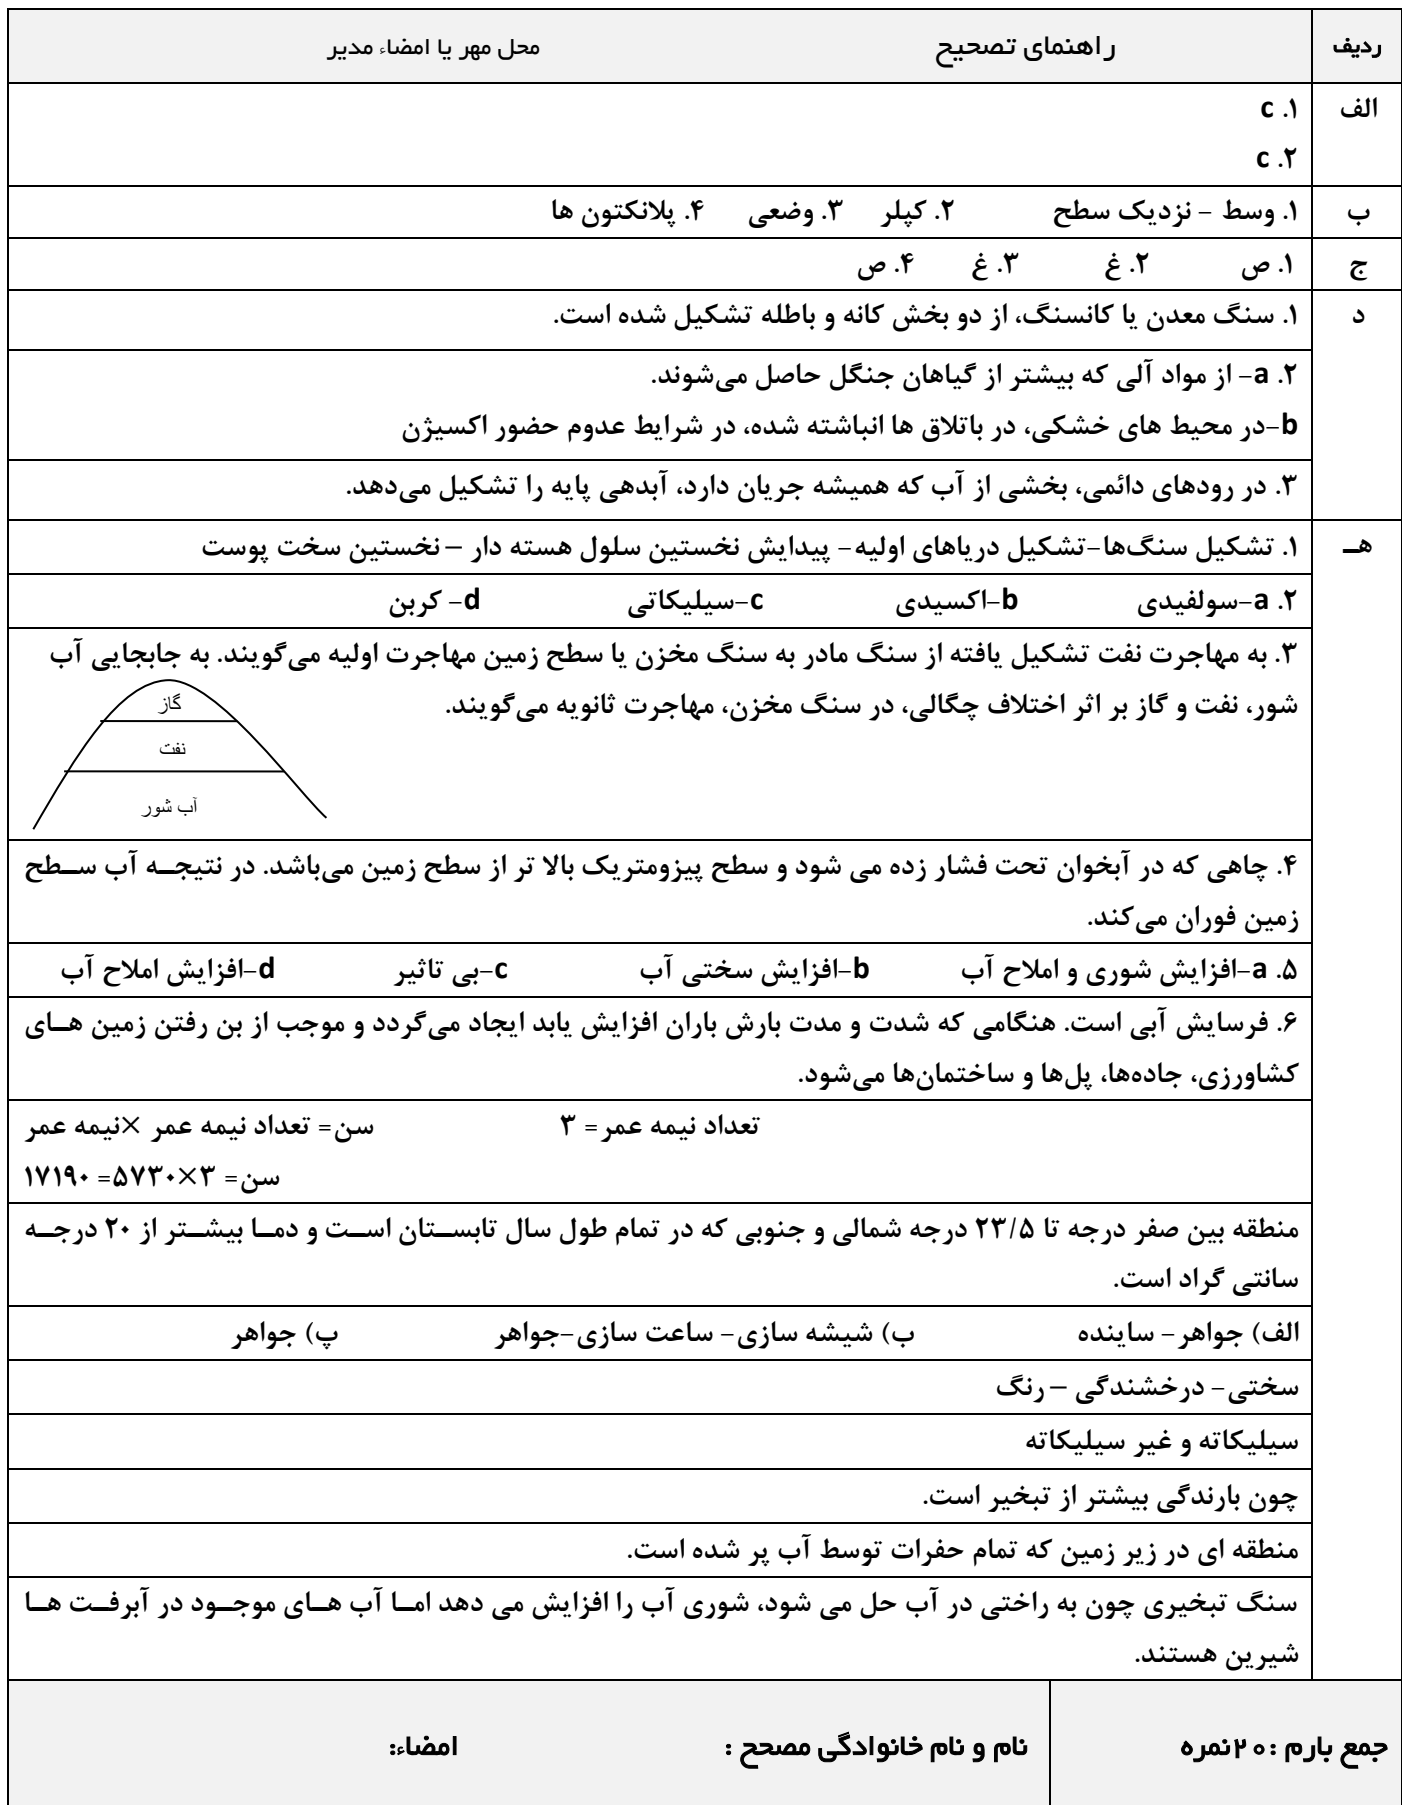 ردیف راهنمای تصحیح محل مهر یا امضاء مدیر
الف ۱. c
۲. c
ب ۱. وسط - نزدیک سطح ۲. کپلر ۳. وضعی ۴. پلانکتون ها
ج ۱. ص ۲. غ ۳. غ ۴. ص
د ۱. سنگ معدن یا کانسنگ، از دو بخش کانه و باطله تشکیل شده است.
۲. a- از مواد آلی که بیشتر از گیاهان جنگل حاصل می‌شوند.
b-در محیط های خشکی، در باتلاق ها انباشته شده، در شرایط عدوم حضور اکسیژن
۳. در رودهای دائمی، بخشی از آب که همیشه جریان دارد، آبدهی پایه را تشکیل می‌دهد.
هـ ۱. تشکیل سنگ‌ها-تشکیل دریاهای اولیه- پیدایش نخستین سلول هسته دار – نخستین سخت پوست
۲. a-سولفیدی b-اکسیدی c-سیلیکاتی d- کربن
۳. به مهاجرت نفت تشکیل یافته از سنگ مادر به سنگ مخزن یا سطح زمین مهاجرت اولیه می‌گویند. به جابجایی آب
شور، نفت و گاز بر اثر اختلاف چگالی، در سنگ مخزن، مهاجرت ثانویه می‌گویند.
گاز
نفت
آب شور
۴. چاهی که در آبخوان تحت فشار زده می شود و سطح پیزومتریک بالا تر از سطح زمین می‌باشد. در نتیجــه آب ســطح
زمین فوران می‌کند.
۵. a-افزایش شوری و املاح آب b-افزایش سختی آب c-بی تاثیر d-افزایش املاح آب
۶. فرسایش آبی است. هنگامی که شدت و مدت بارش باران افزایش یابد ایجاد می‌گردد و موجب از بن رفتن زمین هــای
کشاورزی، جاده‌ها، پل‌ها و ساختمان‌ها می‌شود.
تعداد نیمه عمر= ۳ سن= تعداد نیمه عمر ×نیمه عمر
سن= ۳×۵۷۳۰= ۱۷۱۹۰
منطقه بین صفر درجه تا ۲۳/۵ درجه شمالی و جنوبی که در تمام طول سال تابســتان اســت و دمــا بیشــتر از ۲۰ درجــه
سانتی گراد است.
الف) جواهر- ساینده ب) شیشه سازی- ساعت سازی-جواهر پ) جواهر
سختی- درخشندگی – رنگ
سیلیکاته و غیر سیلیکاته
چون بارندگی بیشتر از تبخیر است.
منطقه ای در زیر زمین که تمام حفرات توسط آب پر شده است.
سنگ تبخیری چون به راختی در آب حل می شود، شوری آب را افزایش می دهد امــا آب هــای موجــود در آبرفــت هــا
شیرین هستند.
جمع بارم :۲۰نمره نام و نام خانوادگی مصحح : امضاء: